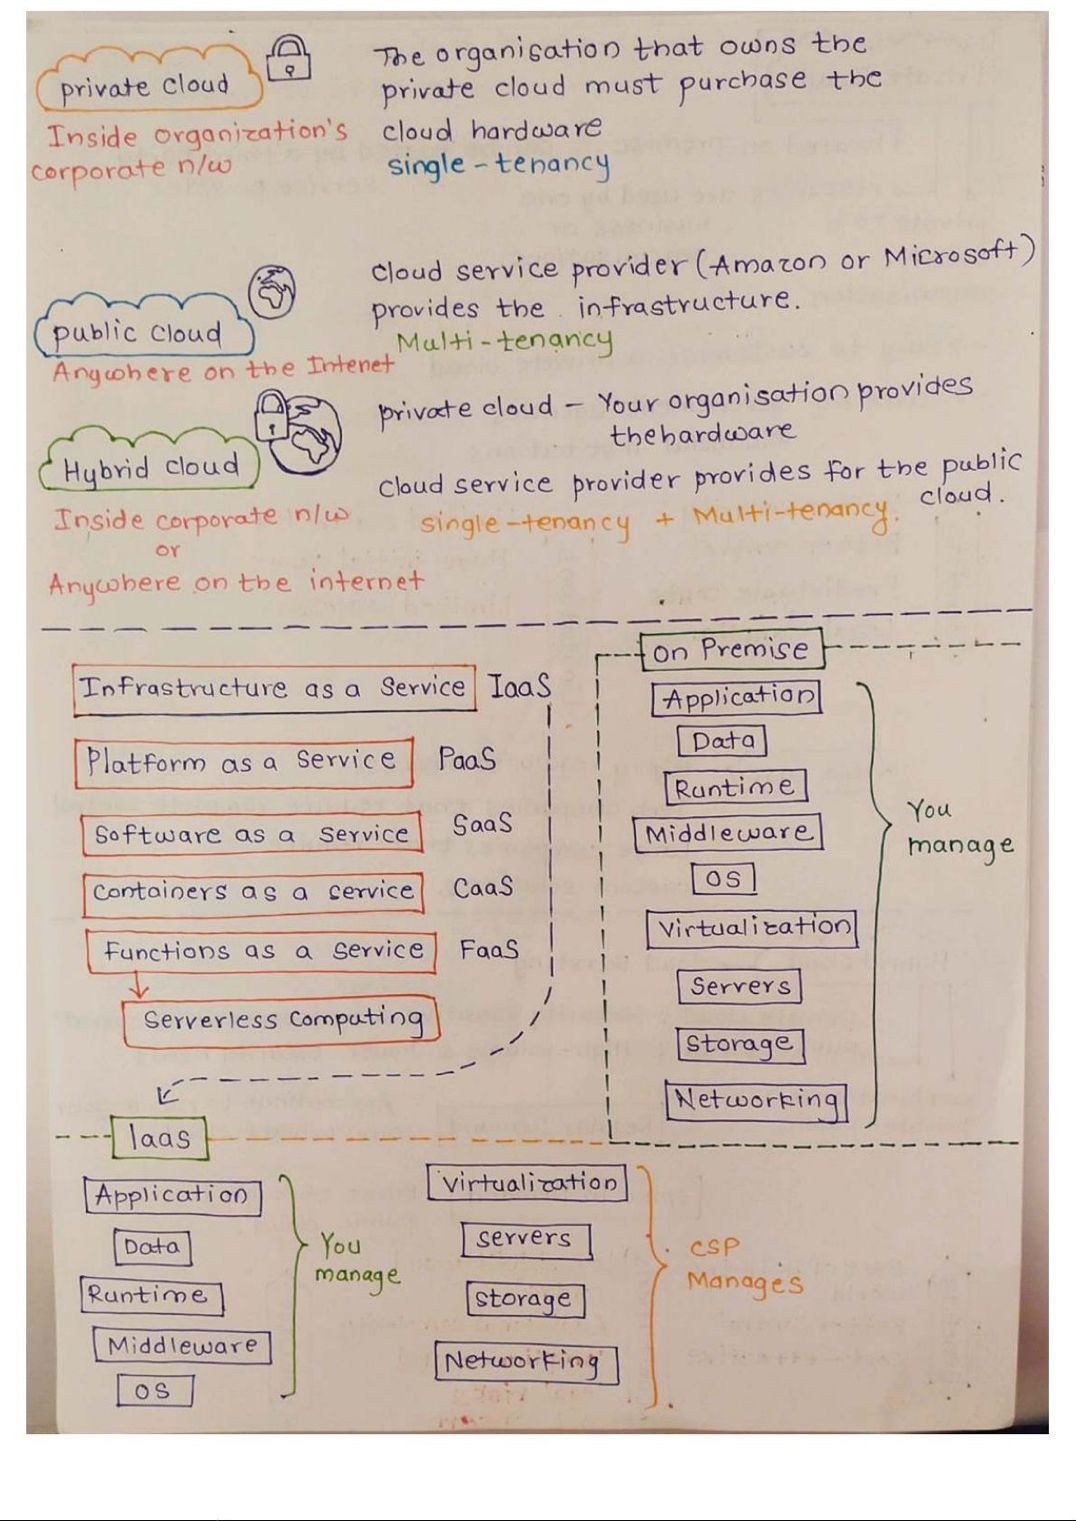 private cloud
Inside organization's
corporate n/w
The organisation that owns the
private cloud must purchase the
cloud hardware
single-tenancy
public cloud
Anywhere on the Intenet
cloud service provider (Amazon or Microsoft)
provides the infrastructure.
Multi-tenancy
Hybrid cloud
Inside corporate n/w
or
Anywhere on the internet
private cloud - Your organisation provides
the hardware
cloud service provider provides for the public
cloud.
single-tenancy + Multi-tenancy.
Infrastructure as a Service IaaS
Platform as a Service PaaS
Software as a Service SaaS
Containers as a service CaaS
Functions as a Service FaaS
Serverless Computing
on Premise
Application
Data
Runtime
Middleware
OS
Virtualization
Servers
Storage
Networking
You
manage
Iaas
Application
Data
Runtime
Middleware
OS
You
manage
Virtualization
Servers
Storage
Networking
CSP
Manages